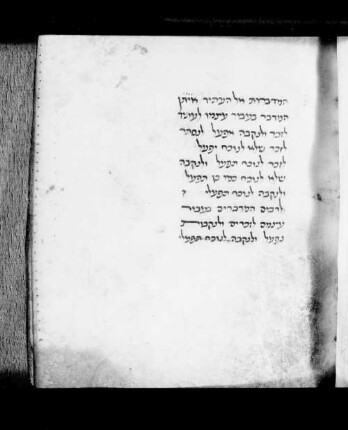 המדברות אל העתיד איתן
המדבר בעבור עצמו לעתיד
לזכר ולנקבה אפעל לנסתר
לזכר שלא לנוכח יפעל
לזכר לנוכח תפעל ולנקבה
שלא לנוכח כמו כן תפעל
ולנקבה לנוכח תפעלי
לרבים המדברים בעבור
עצמם לזכרים ולנקבות
נפעל ולנקבה לנוכח תפעלי